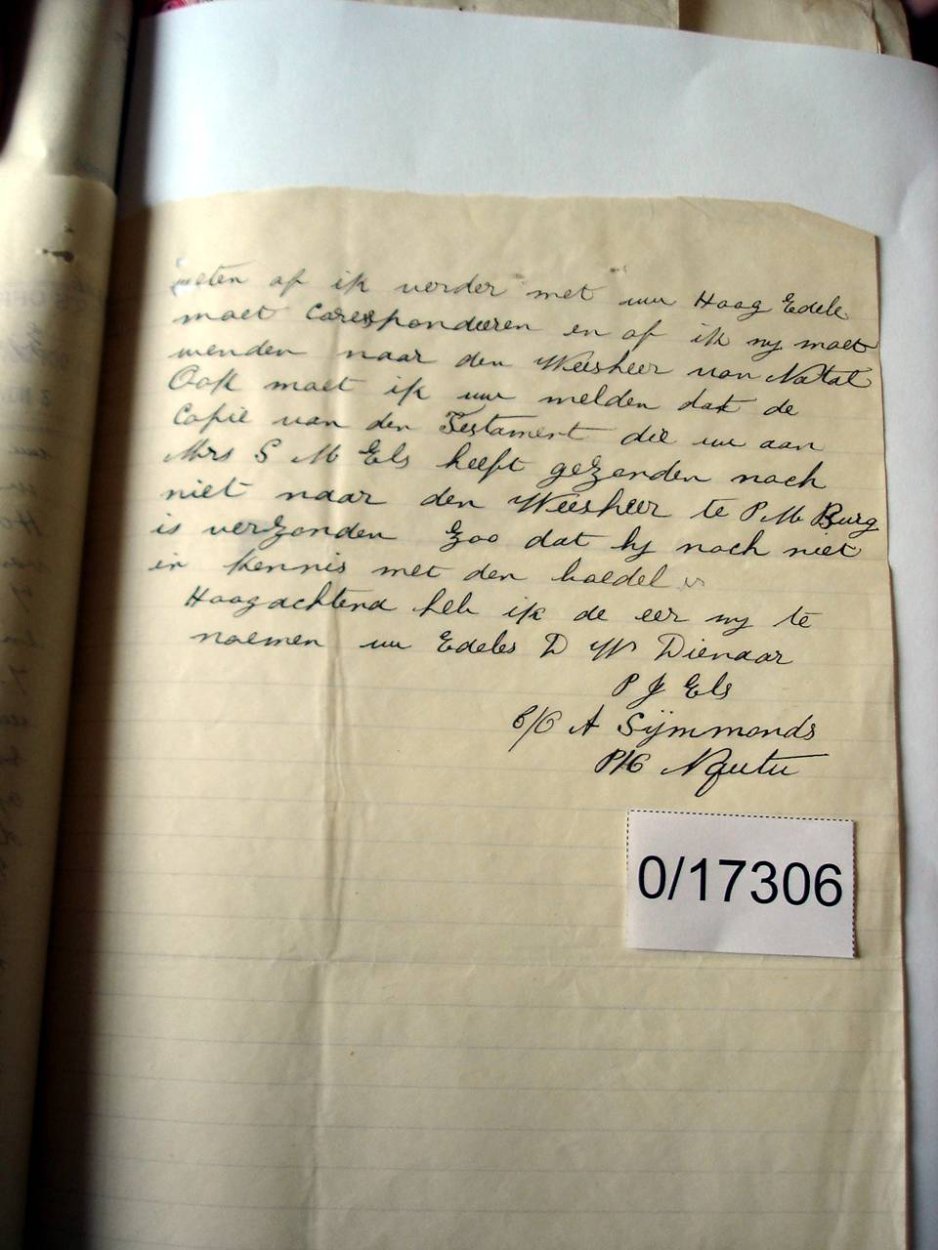 weten of ik verder met uw Hoog Edele
moet Coresponderen en of ik my moet
wenden naar den Weesheer van Natal
Ook moet ik uw melden dat de
Copie van den Testament die uw aan
Mrs S M Els heeft gezonden noch
niet naar den Weesheer te P M Burg
is verzonden Zoo dat hy noch niet
in kennis met den boedel is
Hoogachtend heb ik de eer my te
noemen uw Edeles D W Dienaar
P J Els
C/O A Sijmmonds
P/O Nqutu
0/17306